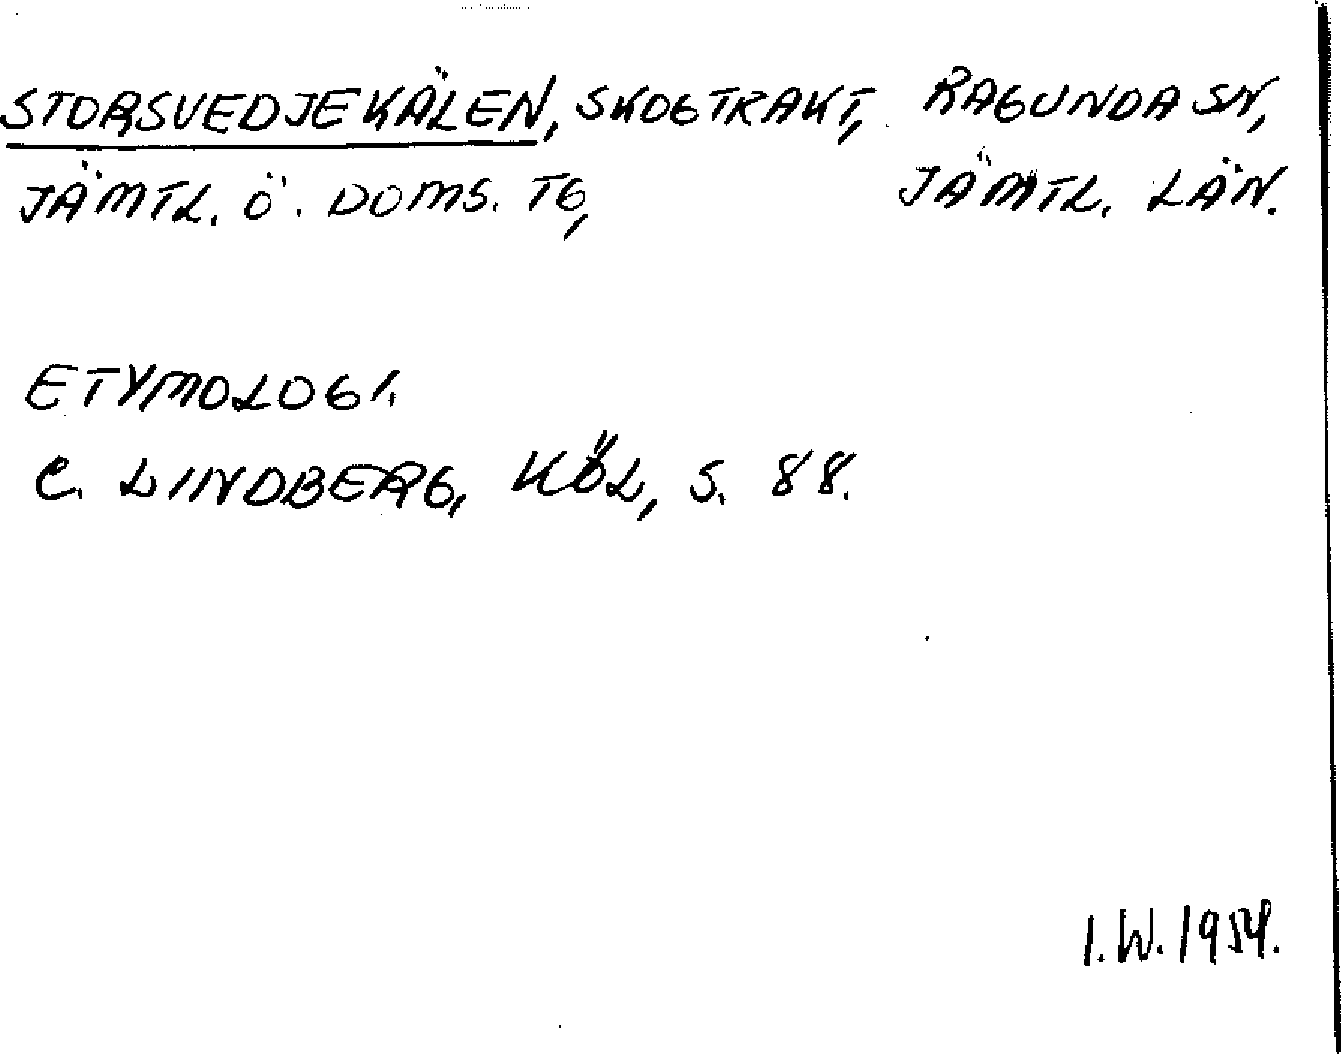 STORSVEDJEKÄLEN, SKOGTRAKT, RAGUNDA SN,
JÄMTL. Ö. DOMS. TG, JÄMTL. LÄN.
ETYMOLOGI.
C. LINDBERG, KÖL, S. 88.
I.W. 1954.